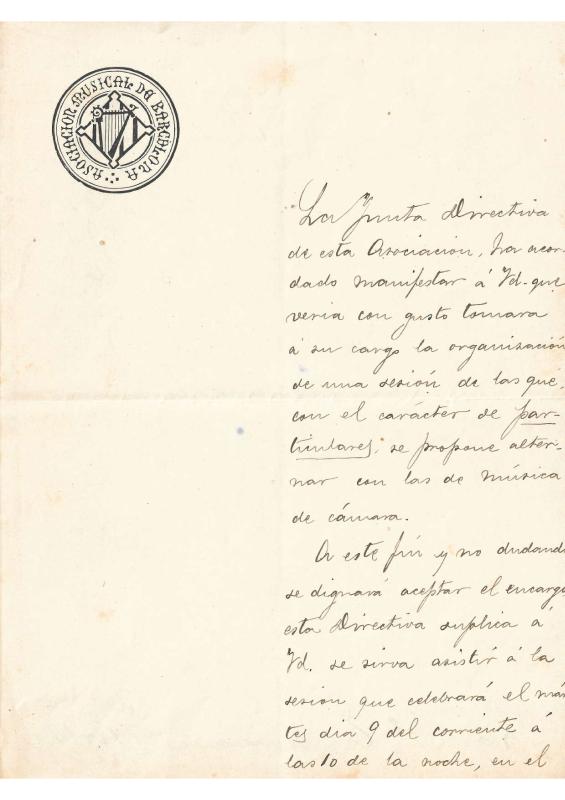 ASOCIACION MUSICAL DE BARCELONA
La Junta Directiva
de esta Asociación, ha acor-
dado manifestar á Vd. que
veria con gusto tomara
á su cargo la organización
de una sesión de las que,
con el carácter de par-
ticulares, se propone alter-
nar con las de música
de cámara.
A este fin y no dudando
se dignará aceptar el encargo
esta Directiva suplica á
Vd. se sirva asistir á la
sesion que celebrará el már-
tes dia 9 del corriente á
las 10 de la noche, en el